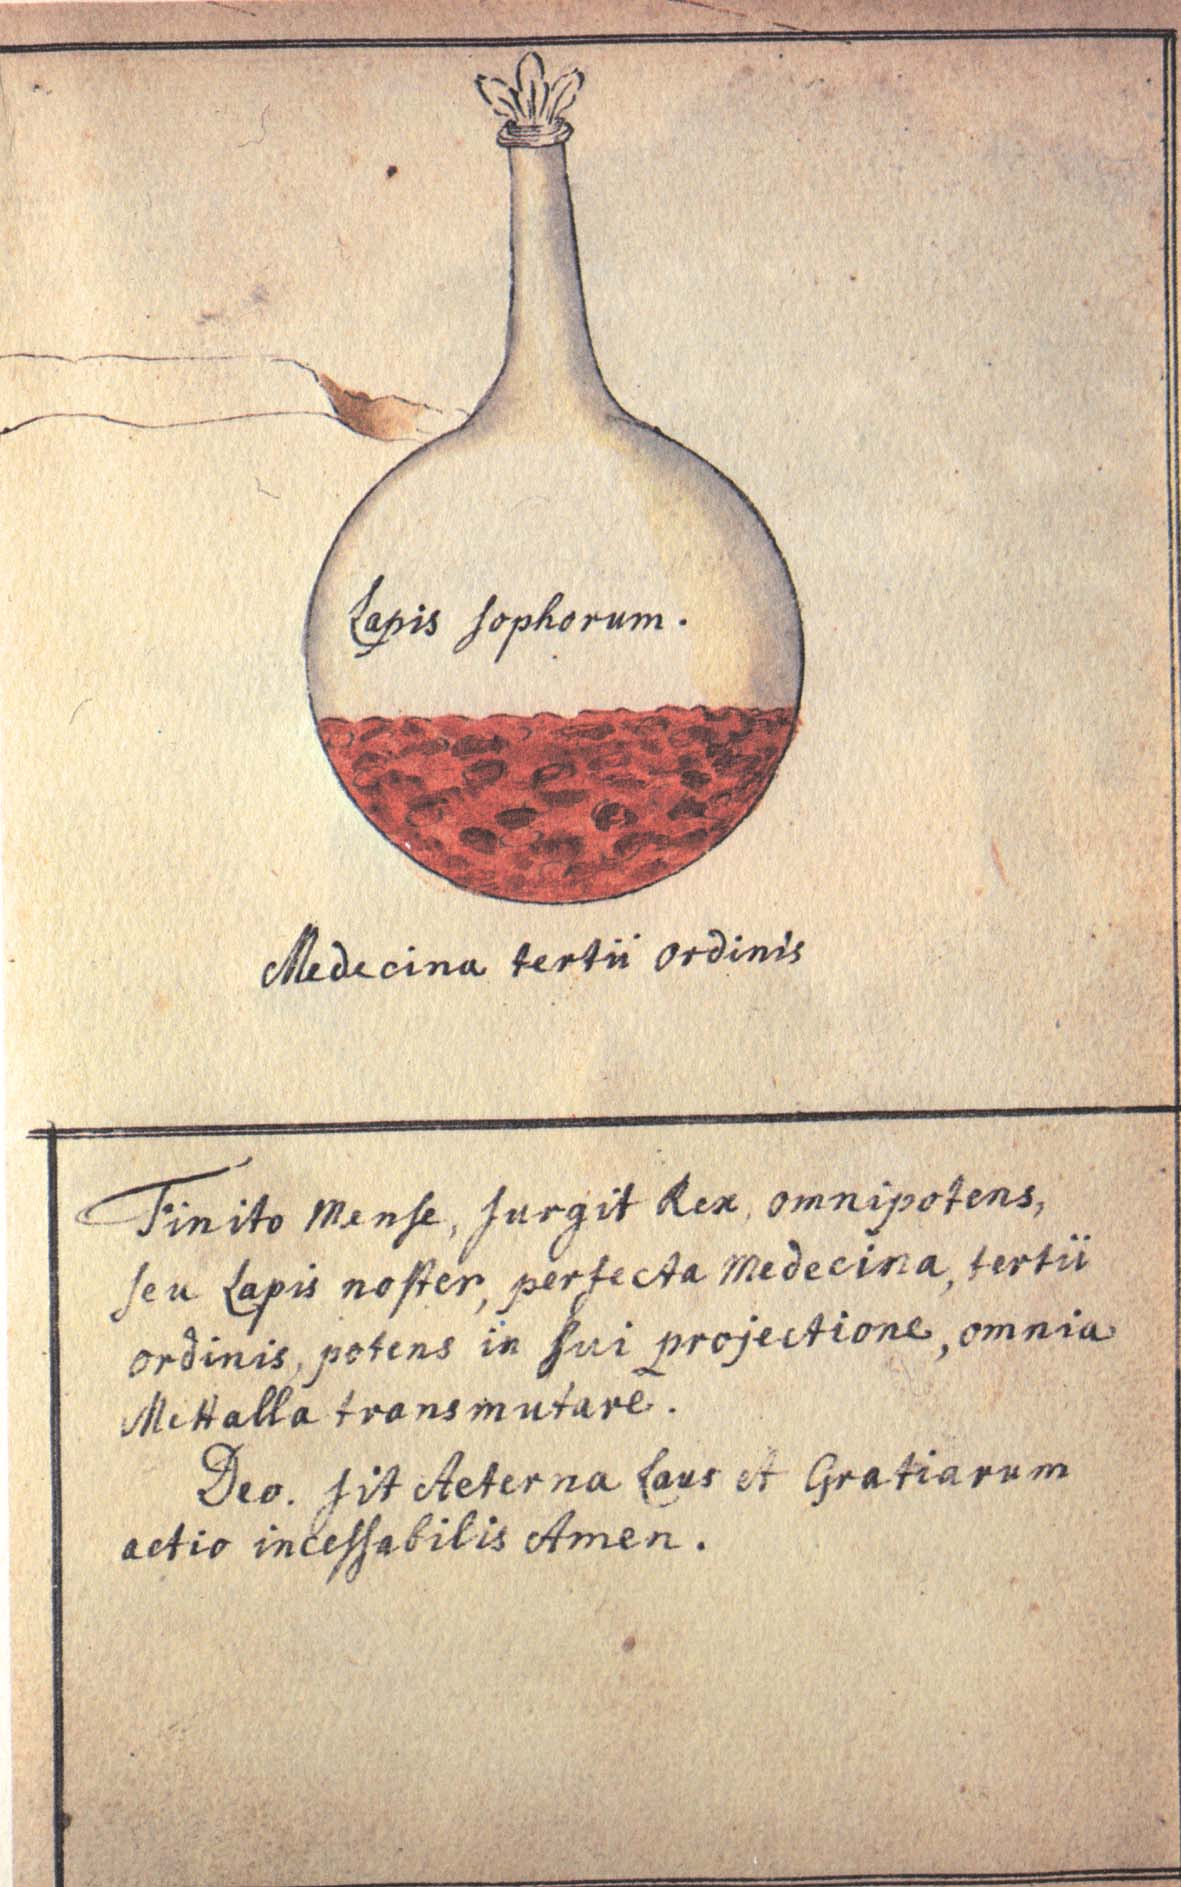 Lapis sophorum.
Medecina tertii ordinis
Finito Mense, surgit Rex, omnipotens,
seu Lapis noster, perfecta Medecina, tertii
ordinis, potens in sui projectione, omnia
Mettalla transmutare.
Deo. sit Aeterna Laus et Gratiarum
actio incessabilis Amen.